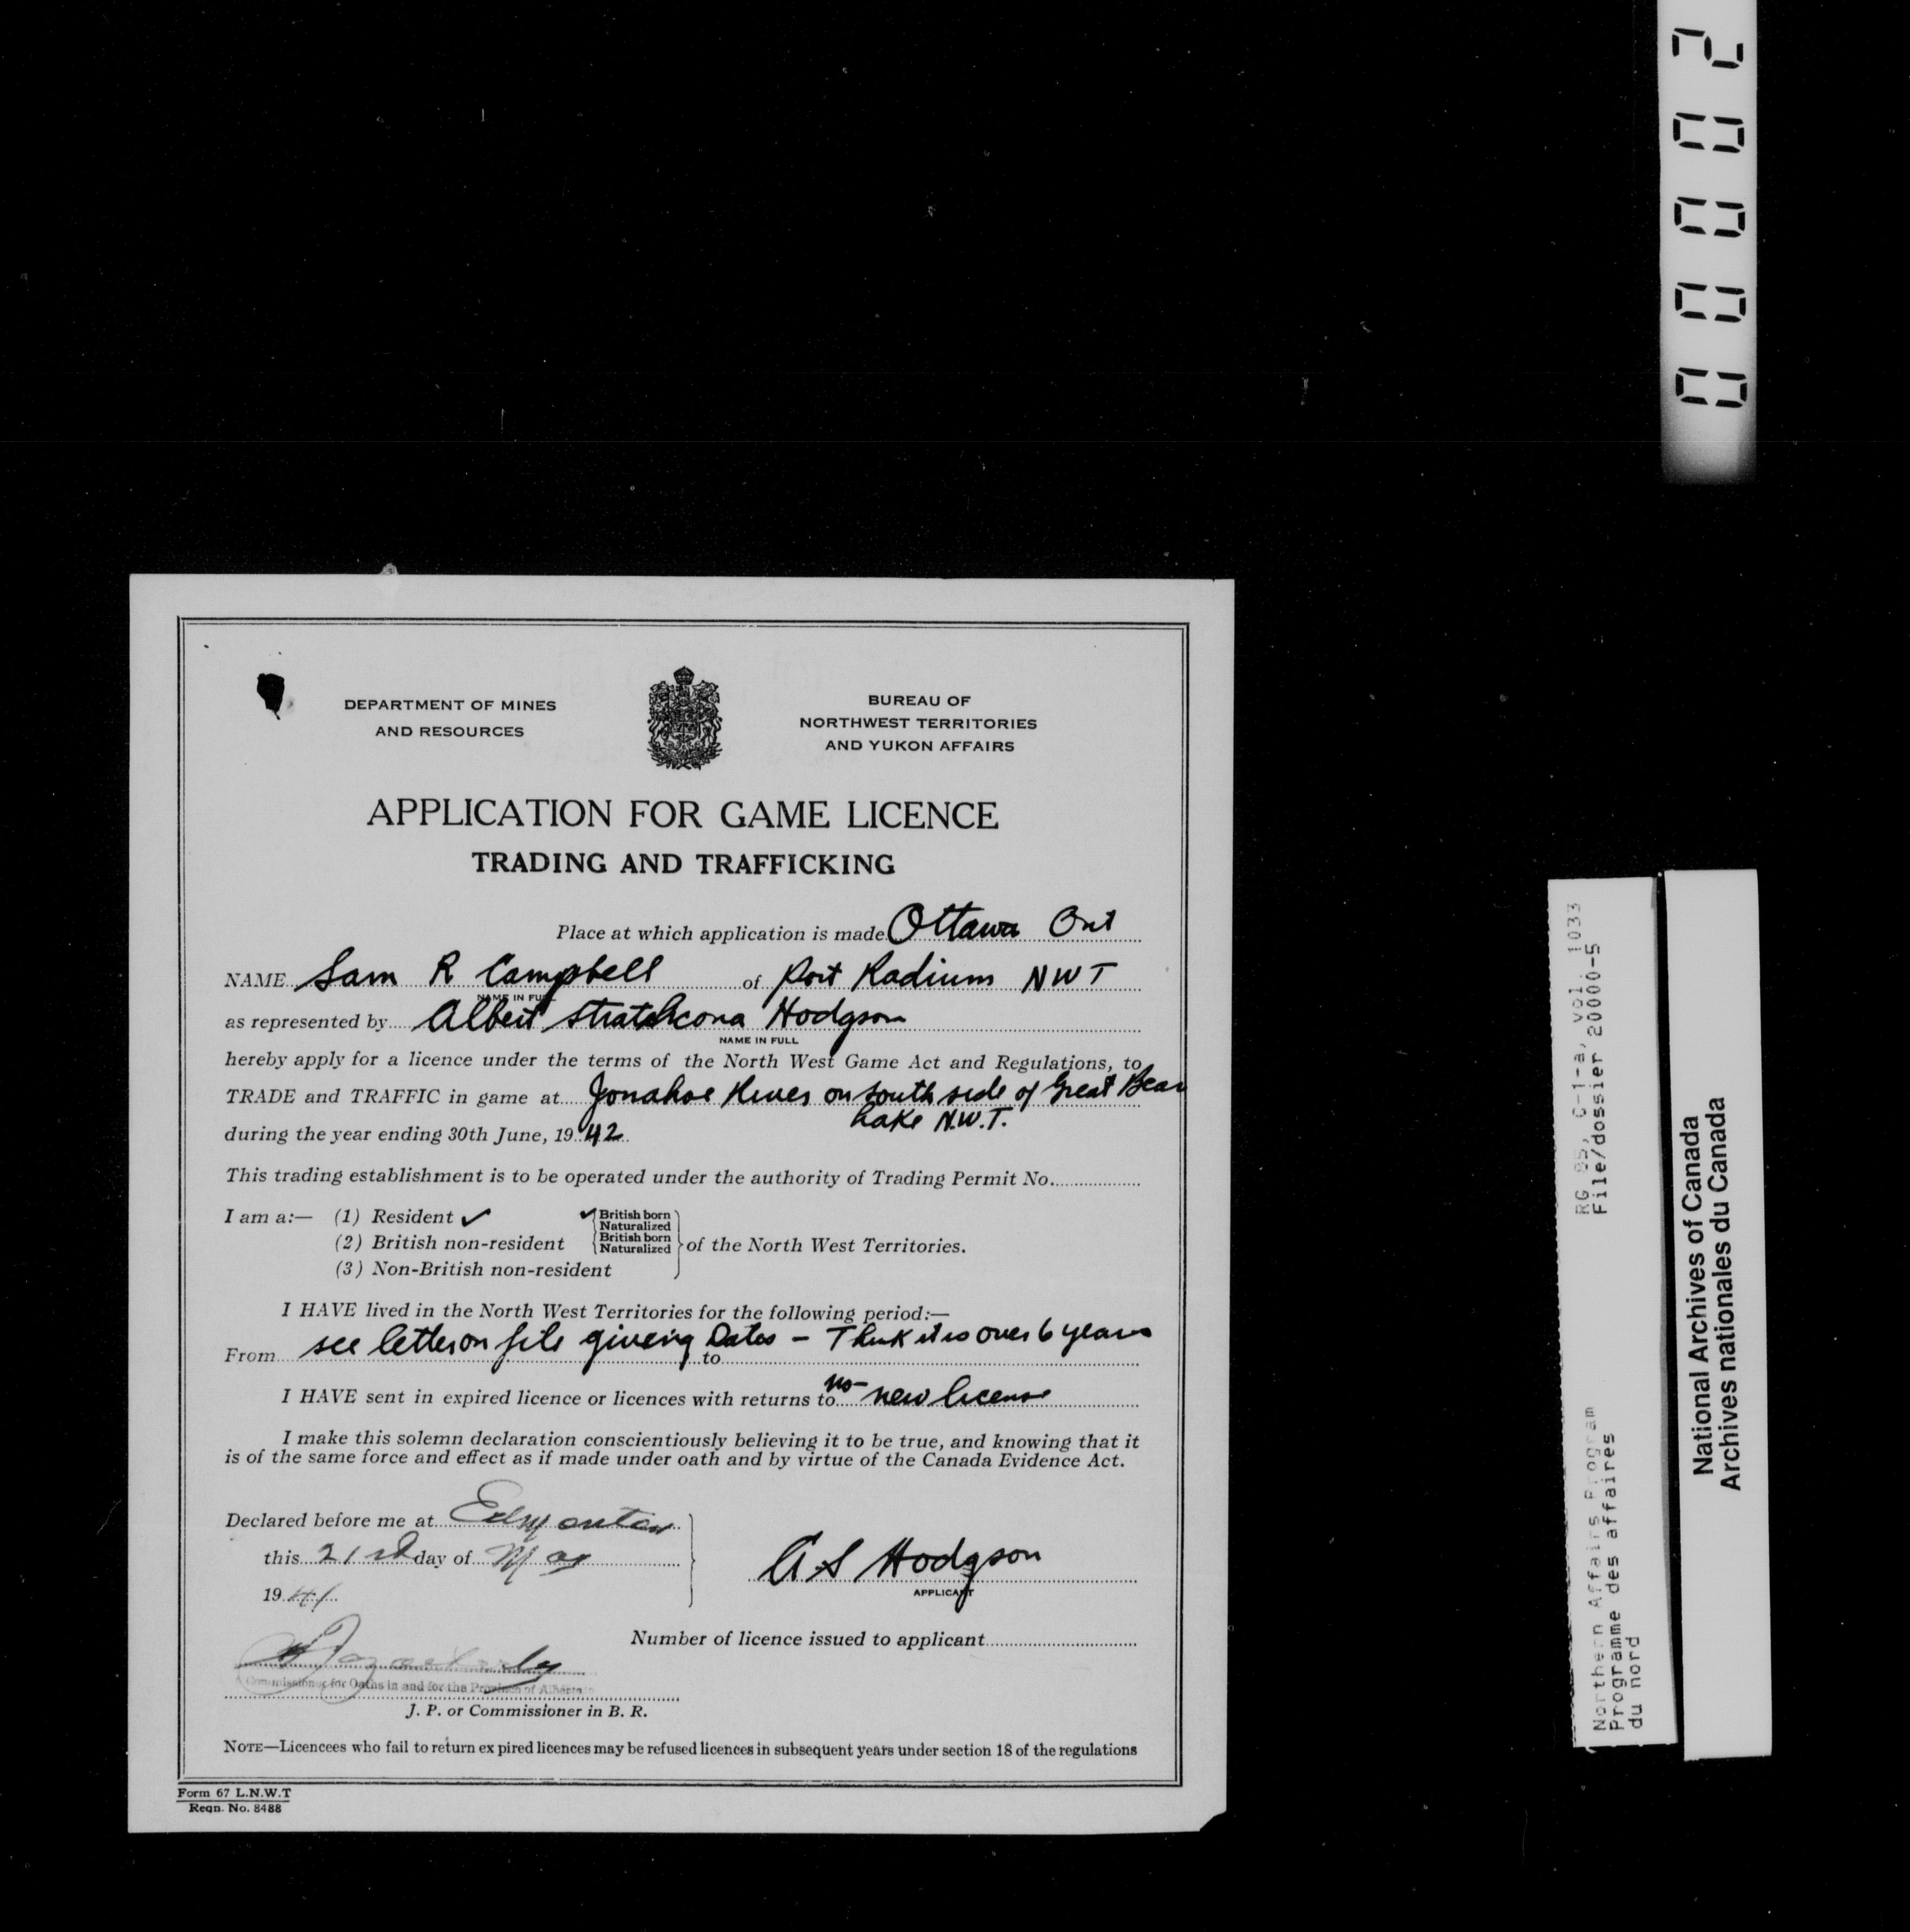 DEPARTMENT OF MINES
AND RESOURCES
BUREAU OF
NORTHWEST TERRITORIES
AND YUKON AFFAIRS
APPLICATION FOR GAME LICENCE
TRADING AND TRAFFICKING
Place at which application is made Ottawa Ont
NAME Sam R Campbell of Port Radium NWT
NAME IN FULL
as represented by Albert Strathcona Hodgson
NAME IN FULL
hereby apply for a licence under the terms of the North West Game Act and Regulations, to
TRADE and TRAFFIC in game at on south side of Great Bear
Lake N.W.T.
during the year ending 30th June, 1942
This trading establishment is to be operated under the authority of Trading Permit No.
I am a:— (1) Resident ✓ ✓ British born
Naturalized
(2) British non-resident British born
Naturalized of the North West Territories.
(3) Non-British non-resident
I HAVE lived in the North West Territories for the following period:—
From see letter on file giving Dates – Think it is over 6 years
to
I HAVE sent in expired licence or licences with returns to no – new license
I make this solemn declaration conscientiously believing it to be true, and knowing that it
is of the same force and effect as if made under oath and by virtue of the Canada Evidence Act.
Declared before me at Edmonton
this 21st day of May
1941
A S Hodgson
APPLICANT
Number of licence issued to applicant
A Commissioner for Oaths in and for the Province of Alberta
J. P. or Commissioner in B. R.
NOTE—Licencees who fail to return expired licences may be refused licences in subsequent years under section 18 of the regulations
Form 67 L.N.W.T
Reqn. No. 8488
00002
RG 85, C-1-a, Vol. 1033
File/dossier 20000-5
Northern Affairs Program
Programme des affaires
du nord
National Archives of Canada
Archives nationales du Canada